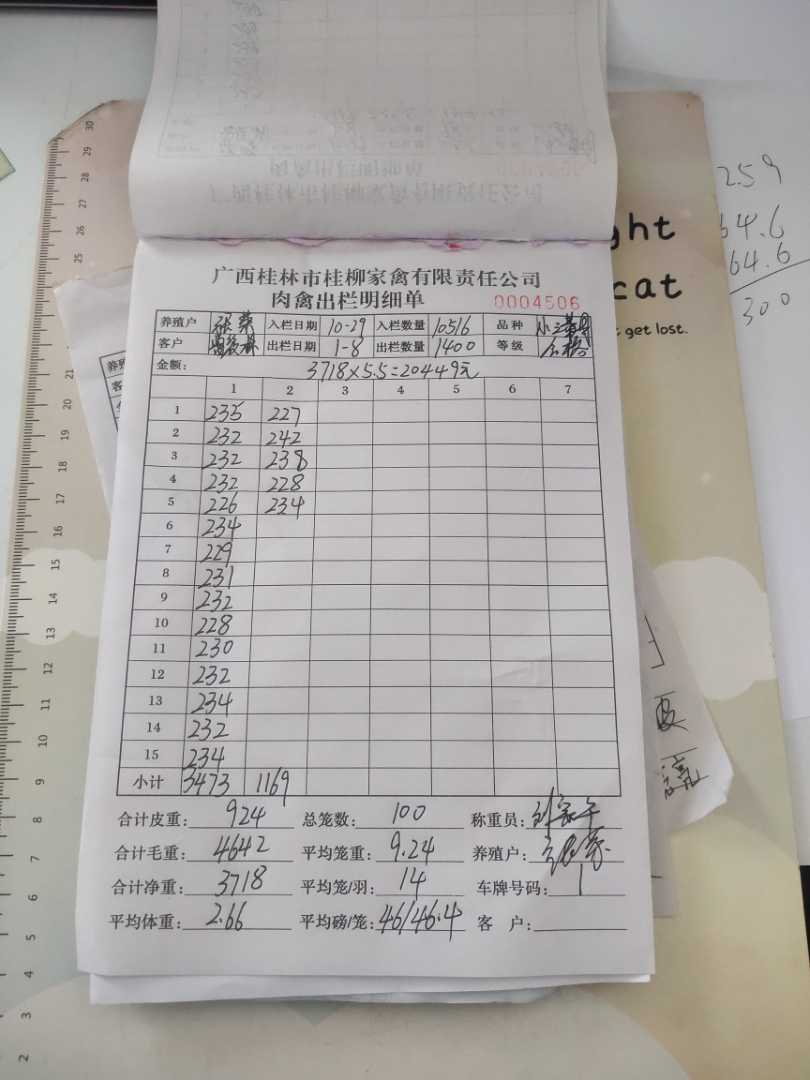 广西桂林市桂柳家禽有限责任公司
肉禽出栏明细单 0004506
养殖户 张荣 入栏日期 10-29 入栏数量 10516 品种
客户 出栏日期 1-8 出栏数量 1400 等级 合格
金额: 3718×5.5=20449元
1 2 3 4 5 6 7
1 235 227
2 232 242
3 232 238
4 232 228
5 226 234
6 234
7 229
8 231
9 232
10 228
11 230
12 232
13 234
14 232
15 234
小计 3473 1169
合计皮重: 924 总笼数: 100 称重员:
合计毛重: 4642 平均笼重: 9.24 养殖户:
合计净重: 3718 平均笼/羽: 14 车牌号码: 1
平均体重: 2.66 平均磅/笼: 46/46.4 客 户:
ght
cat
get lost.
2.59
64.6
64.6
300
养殖
客
30
29
28
27
26
25
21
20
19
18
17
16
15
14
13
12
11
10
9
8
7
6
5
4
3
2